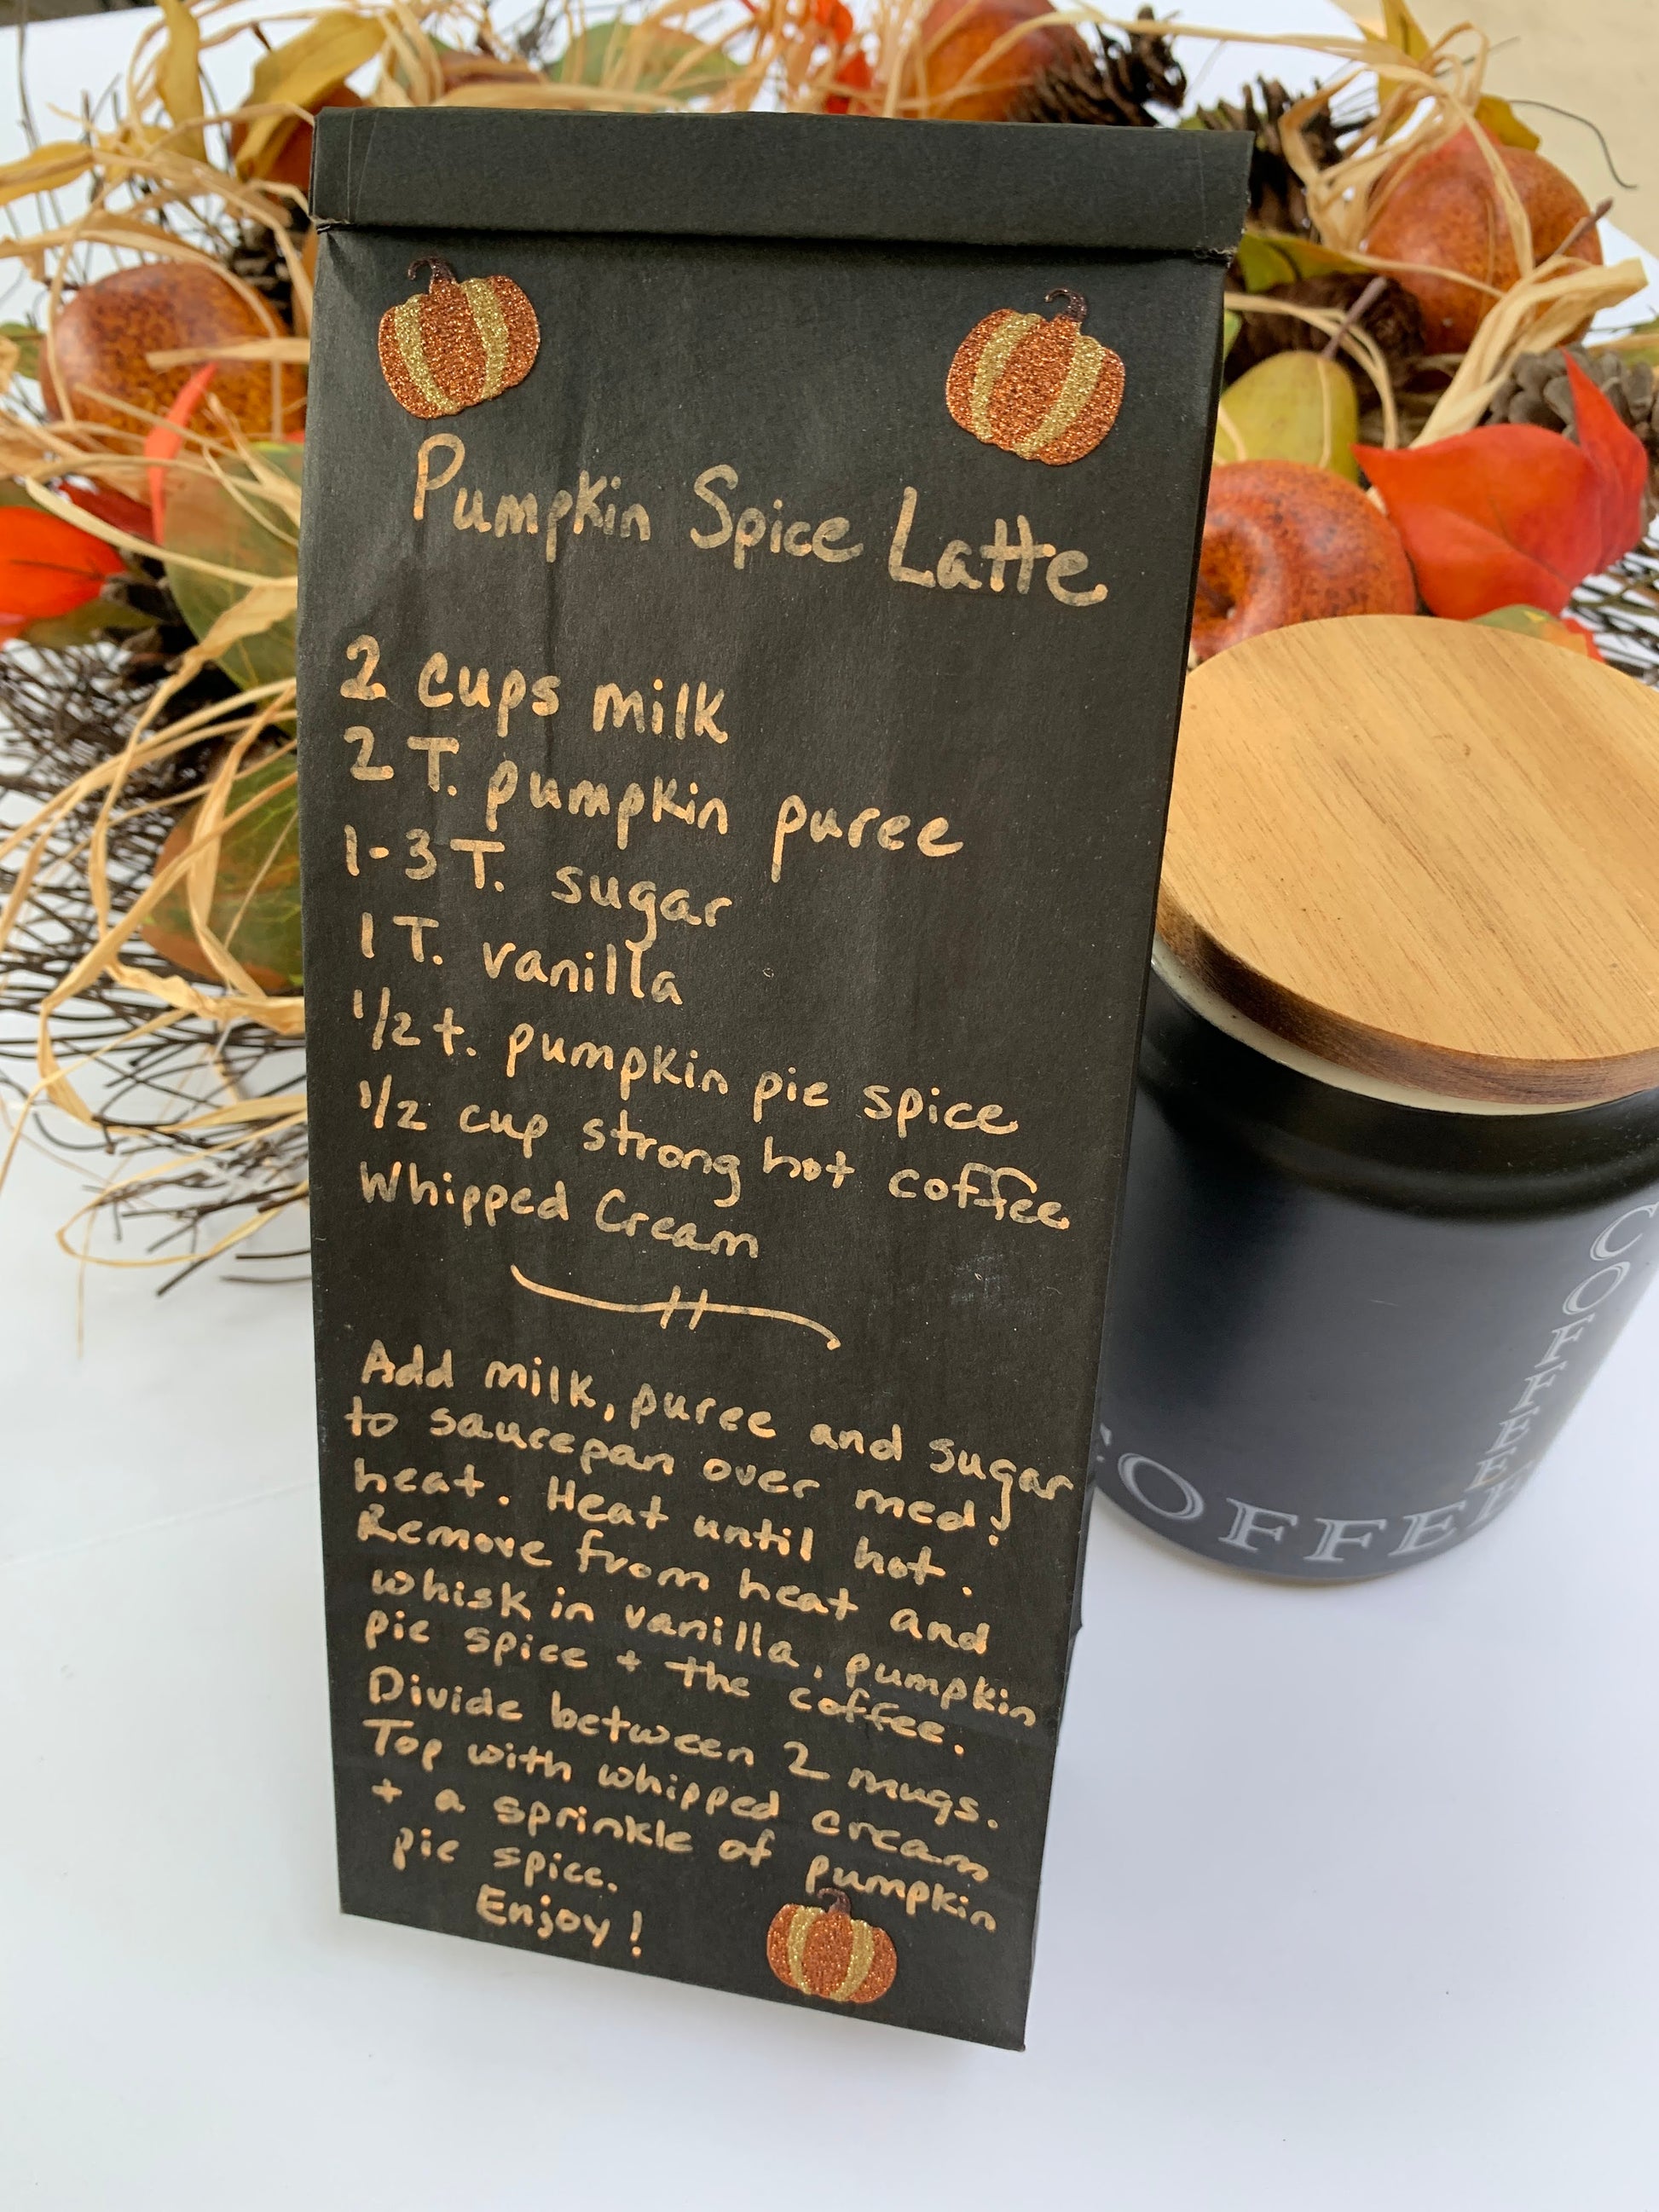 Pumpkin Spice Latte
2 cups milk
2 T. pumpkin puree
1-3 T. sugar
1 T. vanilla
1/2 t. pumpkin pie spice
1/2 cup strong hot coffee
Whipped Cream
Add milk, puree and sugar
to saucepan over med.
heat. Heat until hot.
Remove from heat and
whisk in vanilla, pumpkin
pie spice + the coffee.
Divide between 2 mugs.
Top with whipped cream
+ a sprinkle of pumpkin
pie spice.
Enjoy!
COFFEE
COFFEE